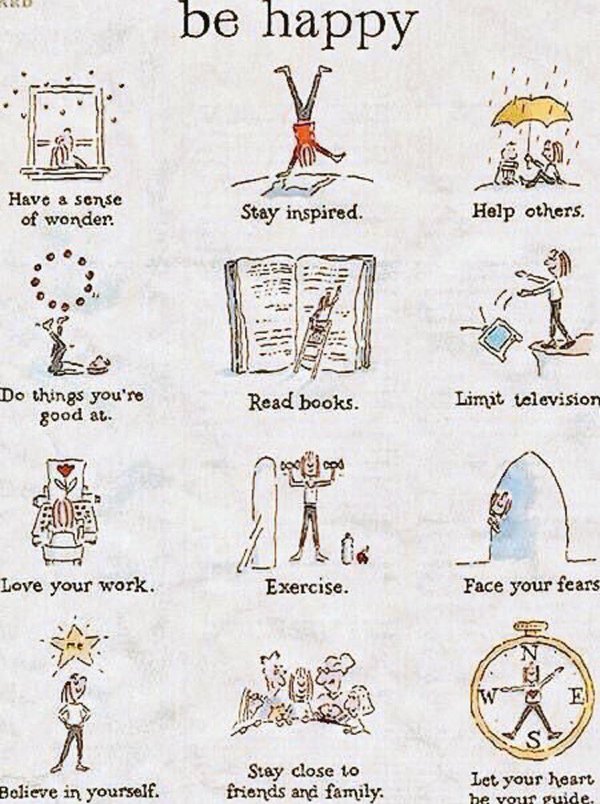 be happy
Have a sense
of wonder.
Stay inspired.
Help others.
Do things you're
good at.
Read books.
Limit television
Love your work.
Exercise.
Face your fears
me
Believe in yourself.
Stay close to
friends and family.
N
W E
S
Let your heart
be your guide.